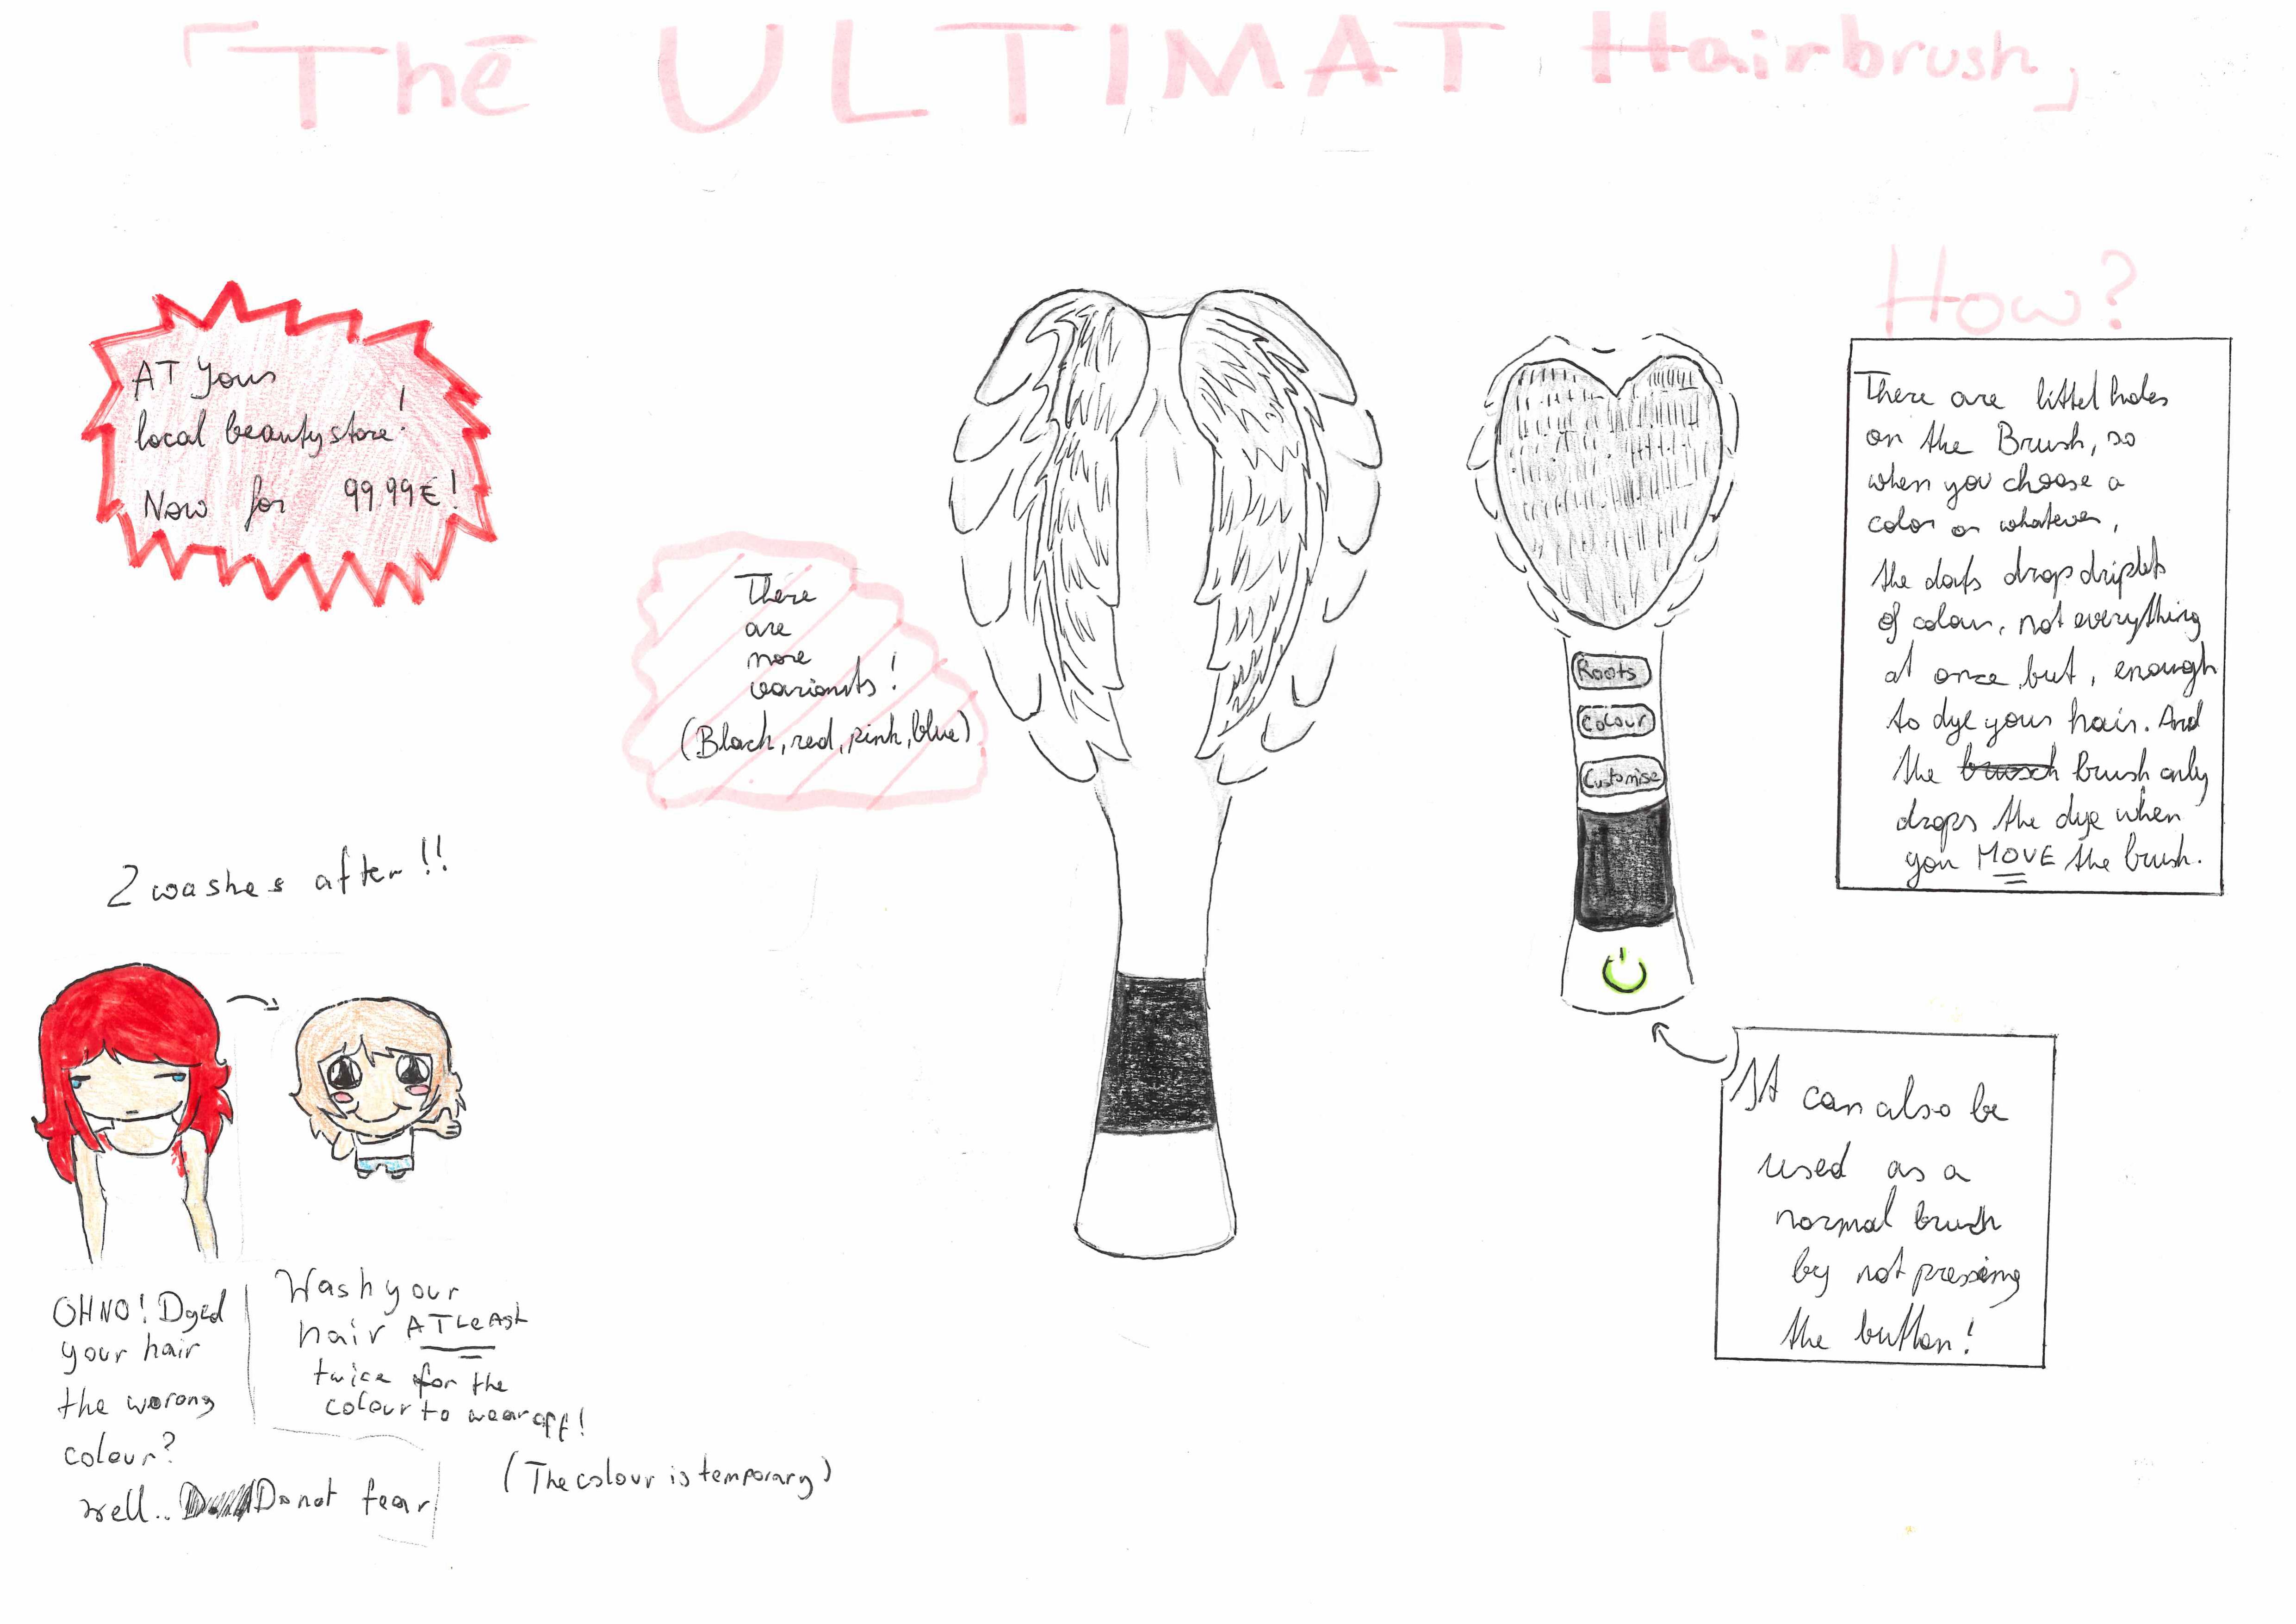 「The ULTIMAT Hairbrush」
AT Your
local beautystore!
Now for 99 99€!
There
are
more
variants!
(Black, red, pink, blue)
2 washes after!!
OHNO! Dyed
your hair
the worong
colour?
well.. Do not fear
Wash your
hair ATLeAst
twice for the
colour to wear off!
(The colour is temporary)
Roots
Colour
Customise
How?
There are littel holes
on the Brush, so
when you choose a
color or whatever,
the dots drop driplets
of colour, not everything
at once but, enough
to dye your hair. And
the brusch brush only
drops the dye when
you MOVE the brush.
It can also be
used as a
normal brush
by not pressing
the button!